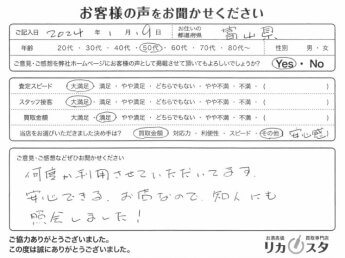 お客様の声をお聞かせください
ご記入日 2024年 1月 19日 お住いの都道府県 富山県
年齢 20代・30代・40代・50代・60代・70代・80代〜 性別 男・女
ご意見・ご感想を弊社ホームページにお客様の声として掲載させて頂いてもよろしいでしょうか? Yes・No
査定スピード 大満足・満足・やや満足・どちらでもない・やや不満・不満・( )
スタッフ接客 大満足・満足・やや満足・どちらでもない・やや不満・不満・( )
買取金額 大満足・満足・やや満足・どちらでもない・やや不満・不満・( )
当店をお選びいただきました決め手は? 買取金額・対応力・利便性・スピード・その他( 安心感 )
ご意見・ご感想などぜひお聞かせください
何度か利用させていただいてます。
安心できる、お店なので、知人にも
照会しました!
ご協力ありがとうございました。
この度は誠にありがとうございました。
お酒高価買取専門店
リカスタ